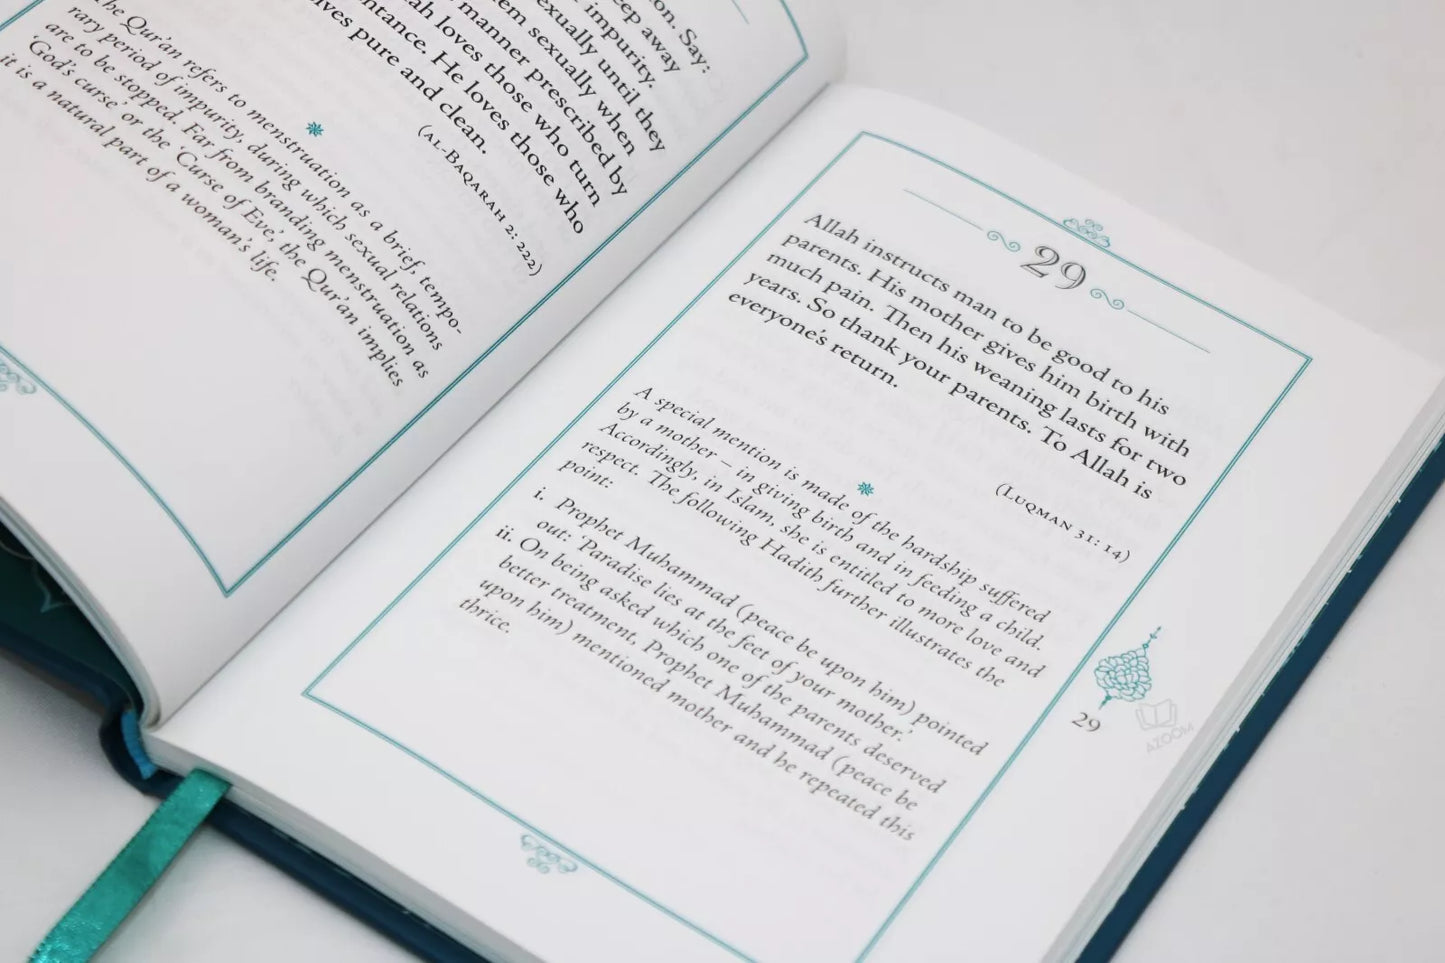 on. Say:
eep away
impurity.
exually until they
em sexually when
manner prescribed by
llah loves those who turn
ntance. He loves those who
ives pure and clean.
(AL-BAQARAH 2: 222)
The Qur'an refers to menstruation as a brief, tempo-
rary period of impurity, during which sexual relations
are to be stopped. Far from branding menstruation as
'God's curse' or the 'Curse of Eve', the Qur'an implies
it is a natural part of a woman's life.
29
Allah instructs man to be good to his
parents. His mother gives him birth with
much pain. Then his weaning lasts for two
years. So thank your parents. To Allah is
everyone's return.
(LUQMAN 31: 14)
A special mention is made of the hardship suffered
by a mother – in giving birth and in feeding a child.
Accordingly, in Islam, she is entitled to more love and
respect. The following Hadith further illustrates the
point:
i. Prophet Muhammad (peace be upon him) pointed
out: 'Paradise lies at the feet of your mother.'
ii. On being asked which one of the parents deserved
better treatment, Prophet Muhammad (peace be
upon him) mentioned mother and he repeated this
thrice.
29
AZOOM